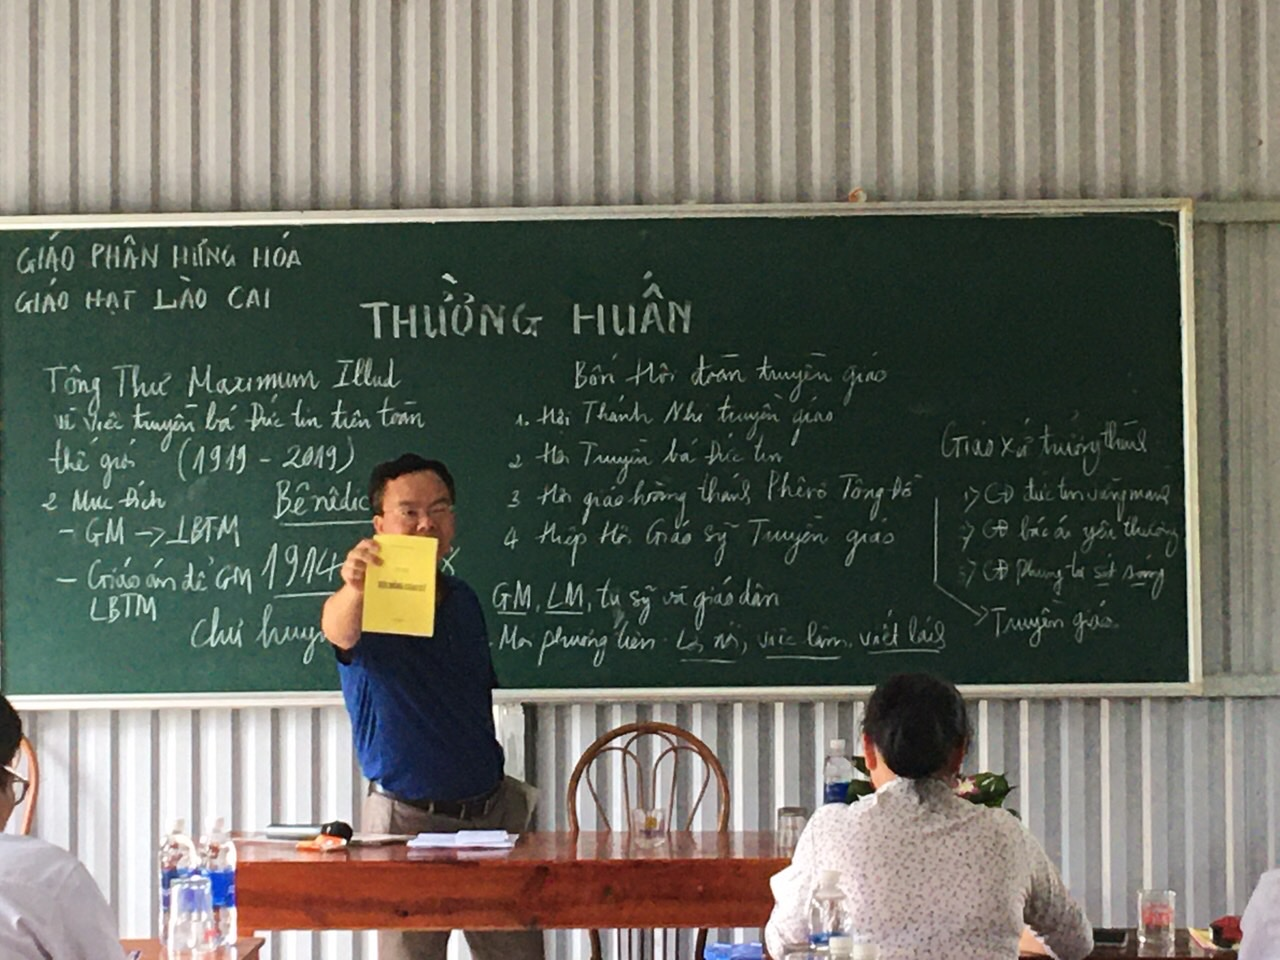 GIÁO PHẬN HƯNG HÓA
GIÁO HẠT LÀO CAI
THƯỜNG HUẤN
Tông Thư Maximum Illud
về việc truyền bá Đức tin trên toàn
thế giới (1919 - 2019)
2 Mục Đích
- GM -> LBTM
- Giáo án để GM
LBTM
Bênêdic
1914
X
Chú huy
Bốn Hội đoàn truyền giáo
1. Hội Thánh Nhi truyền giáo
2 Hội Truyền bá Đức tin
3 Hội giáo hoàng thánh Phêrô Tông Đồ
4 Hiệp Hội Giáo Sỹ Truyền giáo
GM, LM, tu sỹ và giáo dân
- Mọi phương tiện. Lời nói, việc làm, viết lách
Giáo xứ trưởng thành
1) đức tin vững mạnh
2) bác ái yêu thương
3) phụng tự sốt sắng
Truyền giáo